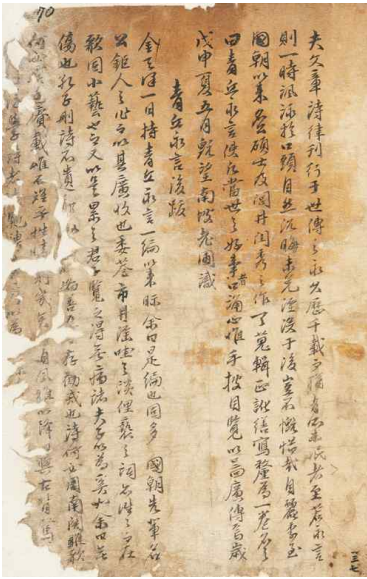 70
夫文章詩律刊行于世傳之永久歷千載而猶有所未泯者至若永言
則一時諷詠於口頭自然沉晦未免湮沒于後豈不慨惜哉自麗季至
國朝以來名公碩士及閭井閨秀之作一一蒐輯正訛繕寫釐爲一卷名之
曰靑丘永言使凡當世之好事者口誦心惟手披目覽以圖廣傳焉歲
戊申夏五月旣望南坡老圃識
靑丘永言後跋
金天澤一日持靑丘永言一編以來眎余曰是編也固多國朝先輩名
公鉅人之作而以其廣收也委巷市井淫哇之談俚褻之詞亦往往而在
歌固小藝也而又以是累之君子覽之得無病諸夫子以爲奚如余曰無
傷也孔子刪詩不遺存勸戒也詩何必周南關雎歌
賡載惟不離乎性情自風雅以降日與古背
一三七